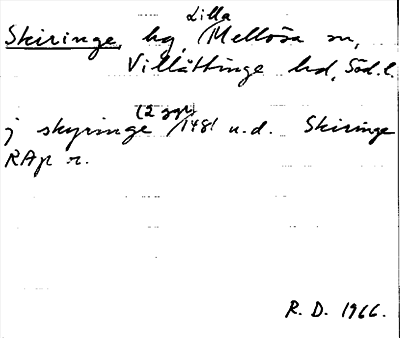 Skiringe, hg, Lilla Mellösa sn,
Villåttinge hd, Söd. l.
j skyringe (2 ggr) 1481 u.d. Skiringe
RAp r.
R. D. 1966.